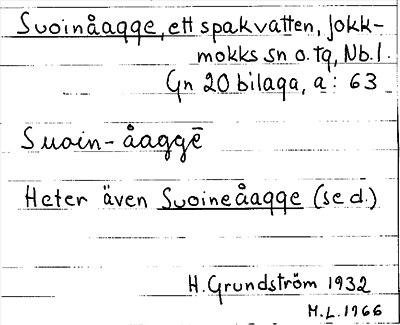 Suoinåagge, ett spakvatten, Jokk-
mokks sn o. tg, Nb.l.
Gn 20 bilaga, a: 63
Suoin-åaggē
Heter även Suoineåagge (se d.)
H. Grundström 1932
H.L. 1966